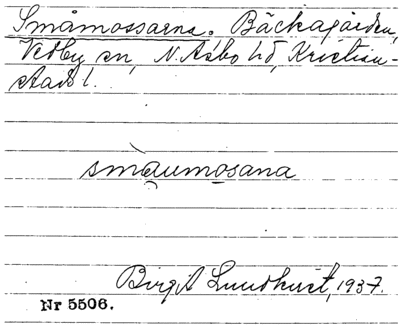 Småmossarna. Bäckagården,
Vedby sn, N. Åsbo hd, Kristian-
stads l.
småumosana
Birgit Lundkvist, 1937.
Nr 5506.